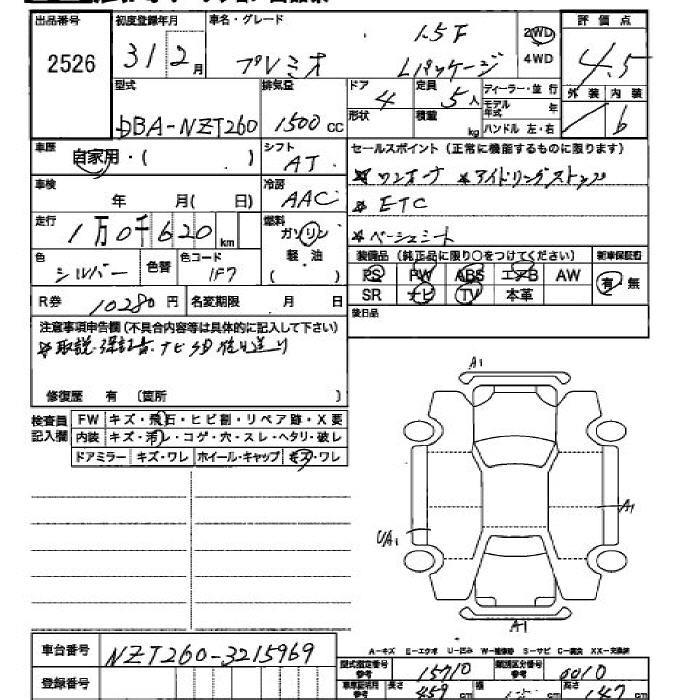 出品番号 初度登録年月 車名・グレード 評価点
2526 31 2月 プレミオ 1.5F Lパッケージ 2WD 4WD 4.5
型式 排気量 ドア 定員 ディーラー・並行 外装 内装
DBA-NZT260 1500cc 4 5人 モデル年式 年 6
形状 積載 kg ハンドル 左・右
車歴 シフト セールスポイント(正常に機能するものに限ります)
自家用・( ) AT ワンオーナ アイドリングストップ
車検 冷房
年 月( 日) AAC ETC
走行 燃料
1万0千620km ガソリン ベージュシート
色 色替 色コード 軽・油 装備品(純正品に限り○をつけてください) 新車保証書
シルバー 1F7 ( ) PS PW ABS エアB AW 有・無
R券 10280円 名変期限 月 日 SR ナビ TV 本革
注意事項申告欄(不具合内容等は具体的に記入して下さい) 後日品
取説・保証書・ナビSD後日送り
修復歴 有 (箇所 )
検査員記入欄 FW キズ・飛石・ヒビ割・リペア跡・X要
内装 キズ・汚レ・コゲ・穴・スレ・ヘタリ・破レ
ドアミラー キズ・ワレ ホイール・キャップ キズ・ワレ
A1
A1
UA1
A1
A-キズ E-エクボ U-凹み W-補修跡 S-サビ C-腐食 XX-交換済
車台番号 NZT260-3215969
型式指定番号 参考 15710 類別区分番号 参考 0010
登録番号
車車証明用 参考 長さ 459cm 幅 cm 高さ 147cm